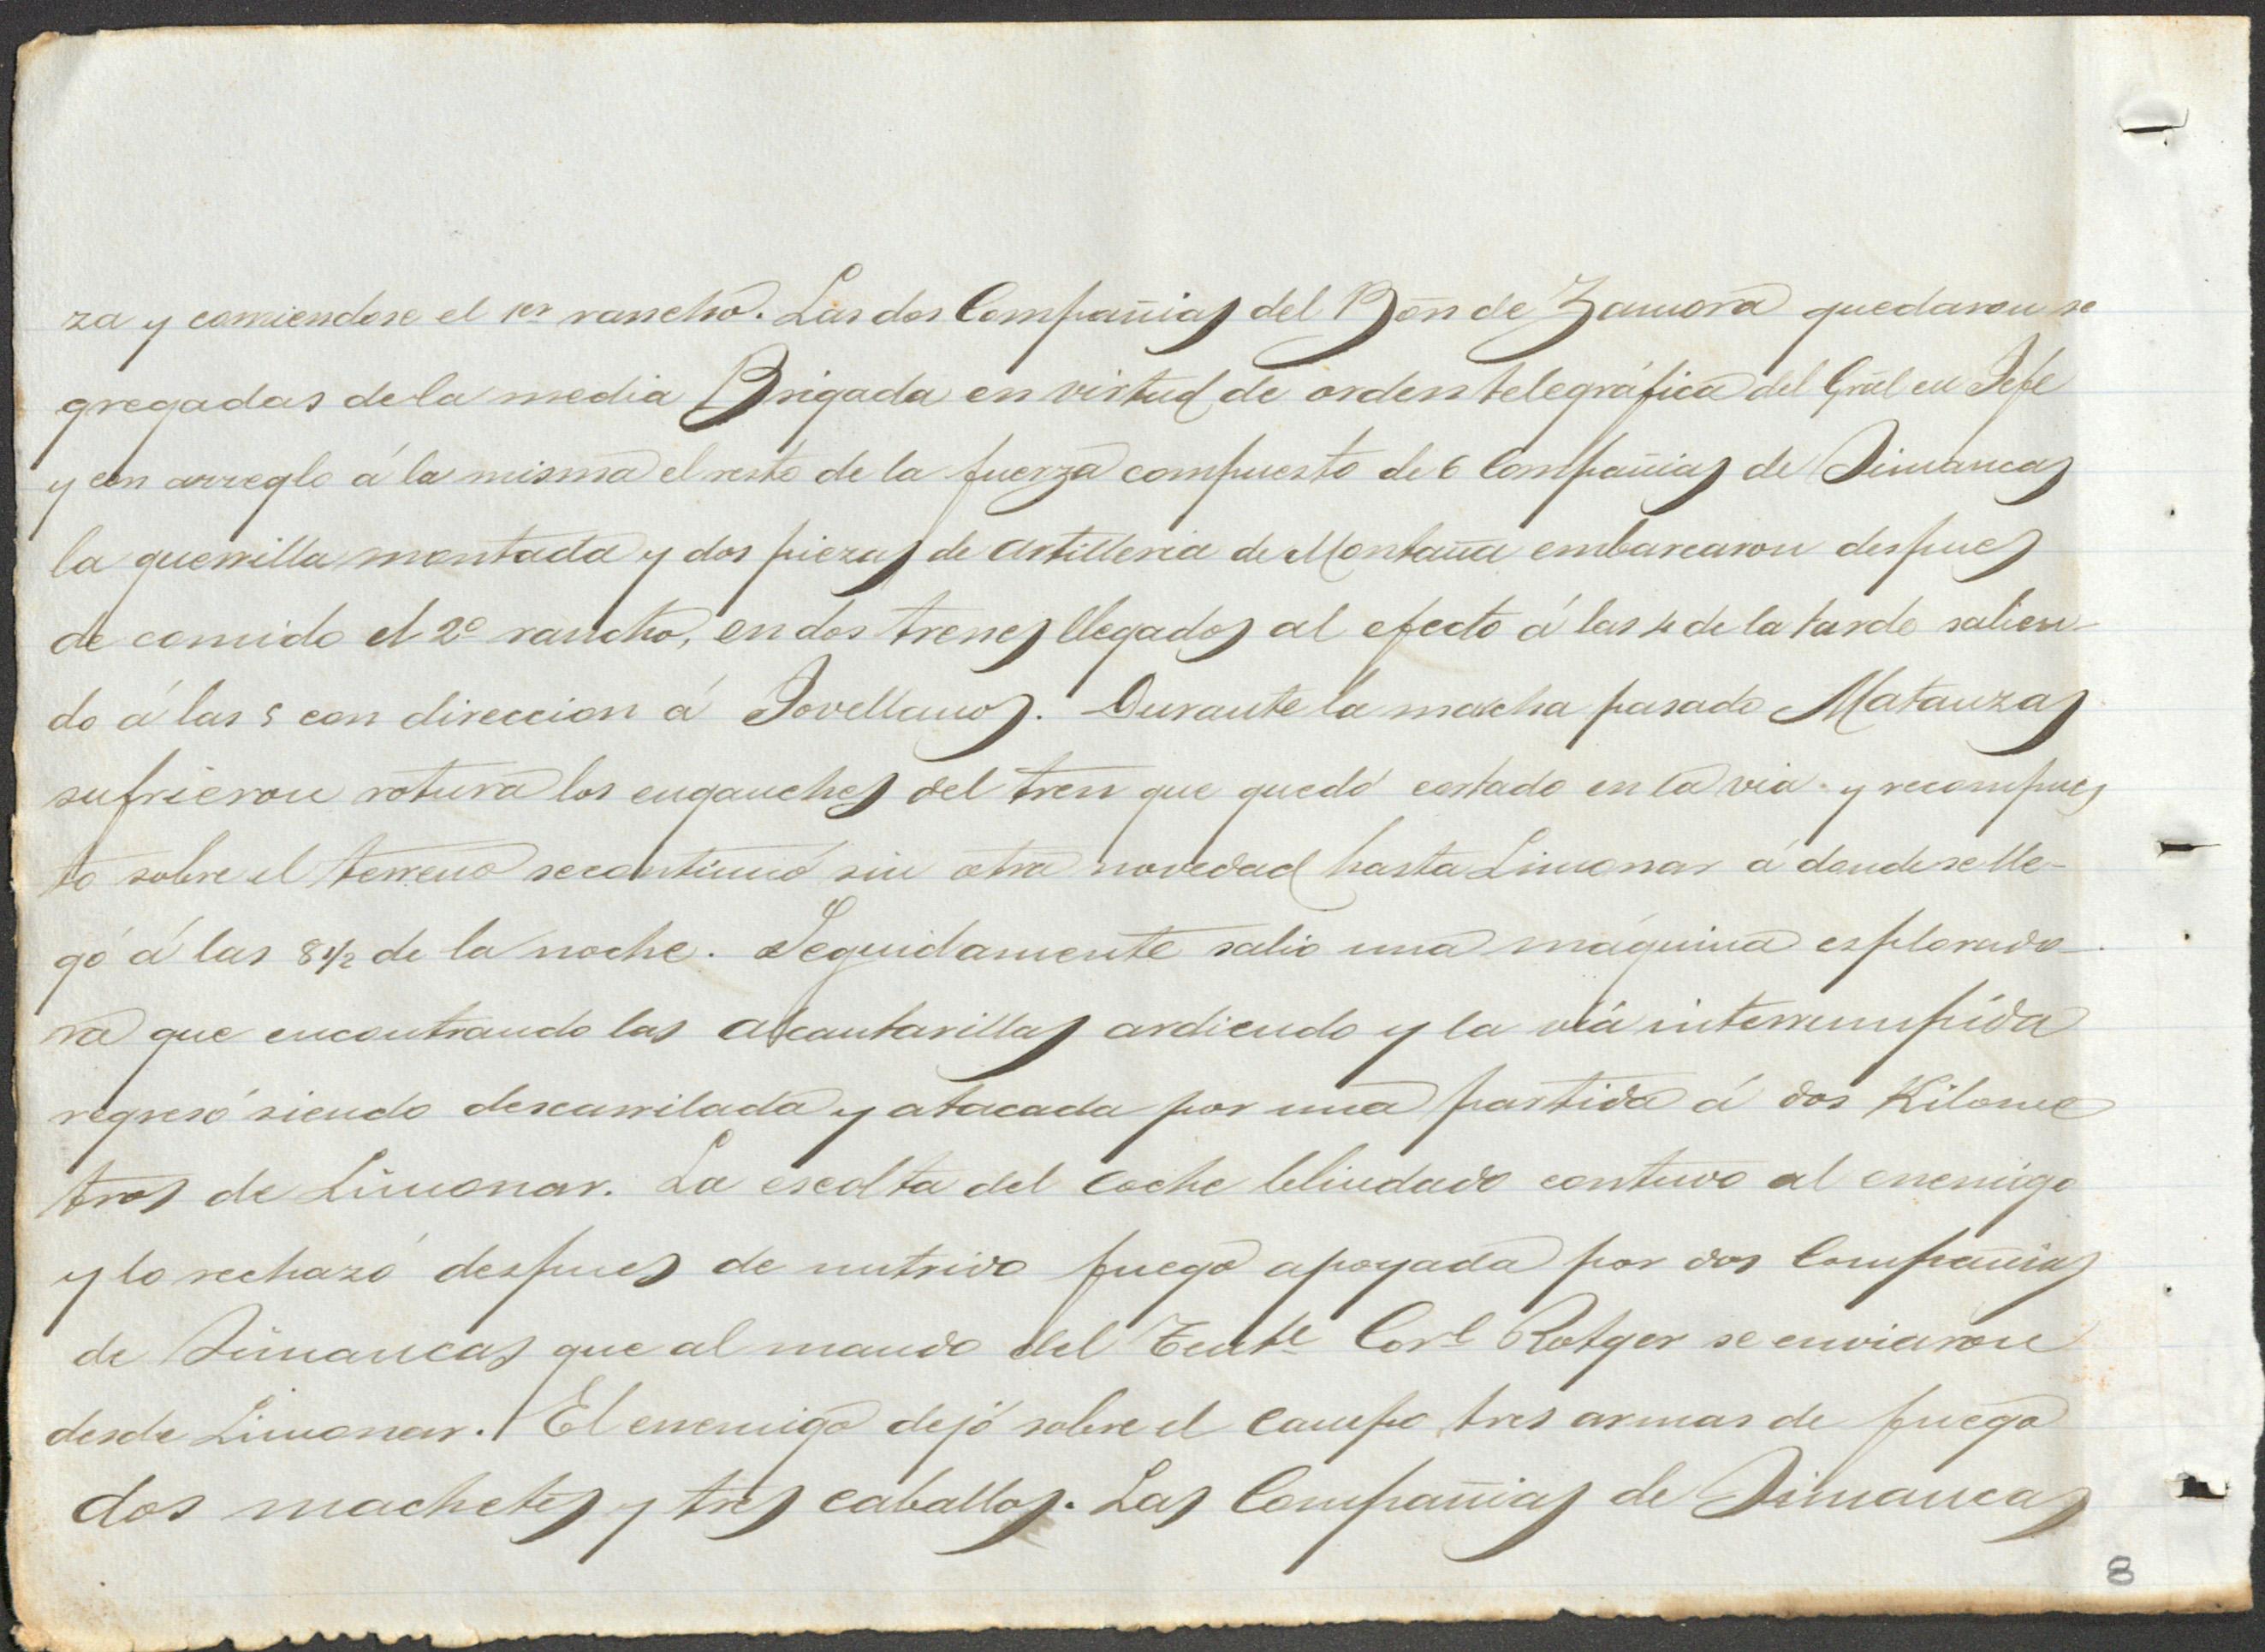 za y comiendose el 1er rancho. Las dos Compañias del Bon de Zamora quedaron se
gregadas de la media Brigada en virtud de orden telegráfica del Gral en Jefe
y con arreglo á la misma el resto de la fuerza compuesto de 6 Compañias de Simancas
la guerrilla montada y dos piezas de Artilleria de Montaña embarcaron despues
de comido el 2º rancho, en dos trenes llegados al efecto á las 4 de la tarde salien-
do á las 5 con direccion á Jovellanos. Durante la marcha pasado Matanzas
sufrieron rotura los enganches del tren que quedó cortado en la via y recompues
to sobre el terreno se continuó sin otra novedad hasta Limonar á donde se lle-
gó á las 8 1/2 de la noche. Seguidamente salio una máquina esplorado-
ra que encontrando las alcantarillas ardiendo y la viá interrumpída
regresó siendo descarrilada y atacada por una partida á dos Kilome
tros de Limonar. La escolta del coche blindado contuvo al enemigo
y lo rechazó despues de nutrido fuego apoyada por dos Compañias
de Simancas que al mando del Tente Corl Rotger se enviaron
desde Limonar. El enemigo dejó sobre el campo tres armas de fuego
dos machetes y tres caballos. Las Compañias de Simancas
8